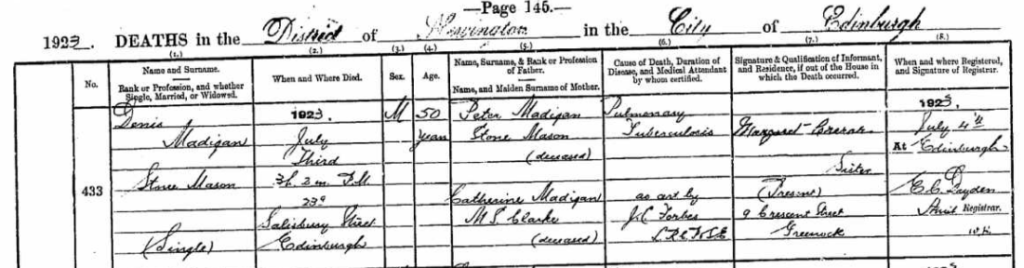 —Page 145.—
1923. DEATHS in the District of Newington in the City of Edinburgh
(1.) (2.) (3.) (4.) (5.) (6.) (7.) (8.)
No.
Name and Surname.
Rank or Profession, and whether Single, Married, or Widowed.
When and Where Died.
Sex.
Age.
Name, Surname, & Rank or Profession of Father.
Name, and Maiden Surname of Mother.
Cause of Death, Duration of Disease, and Medical Attendant by whom certified.
Signature & Qualification of Informant, and Residence, if out of the House in which the Death occurred.
When and where Registered, and Signature of Registrar.
433
Denis
Madigan
Stone Mason
(Single)
1923.
July
Third
3h. 2m. P.M.
Salisbury Street
Edinburgh
M
50
years
Peter Madigan
Stone Mason
(deceased)
Catherine Madigan
M.S. Clarke
(deceased)
Pulmonary
Tuberculosis
as cert by
J C Forbes
Margaret
Sister
(Present)
9 Crescent Street
Greenock
1923,
July 4th
At Edinburgh
Assist Registrar.